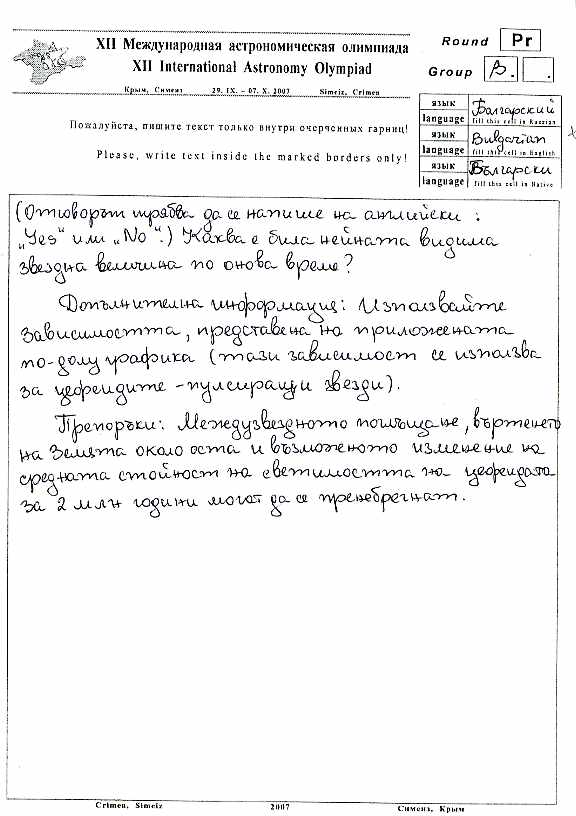 XII Международная астрономическая олимпиада
XII International Astronomy Olympiad
Крым, Симеиз 29. IX. - 07. X. 2007 Simeiz, Crimea
Round Pr
Group β.
Пожалуйста, пишите текст только внутри очерченных гарниц!
Please, write text inside the marked borders only!
язык Болгарский
language fill this cell in Russian
язык Bulgarian
language fill this cell in English
язык Български
language fill this cell in Native
(Отговорът трябва да се напише на английски :
„Yes“ или „No“.) Каква е била нейната видима
звездна величина по онова време?
Допълнителна информация: Използвайте
зависимостта, представена на приложената
по-долу графика (тази зависимост се използва
за цефеидите - пулсиращи звезди).
Препоръки: Междузвездното поглъщане, въртенето
на Земята около оста и възможното изменение на
средната стойност на светимостта на цефеидата
за 2 млн години могат да се пренебрегнат.
Crimea, Simeiz 2007 Симеиз, Крым